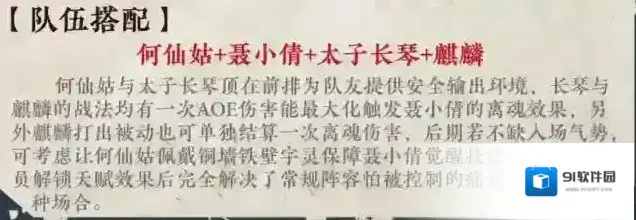 【队伍搭配】
何仙姑+聂小倩+太子长琴+麒麟
何仙姑与太子长琴顶在前排为队友提供安全输出环境，长琴与
麒麟的战法均有一次AOE伤害能最大化触发聂小倩的离魂效果，另
外麒麟打出被动也可单独结算一次离魂伤害，后期若不缺入场气势，
可考虑让何仙姑佩戴铜墙铁壁字灵保障聂小倩觉醒技
员解锁天赋效果后完全解决了常规阵容怕被控制的痛
种场合。
91软件园